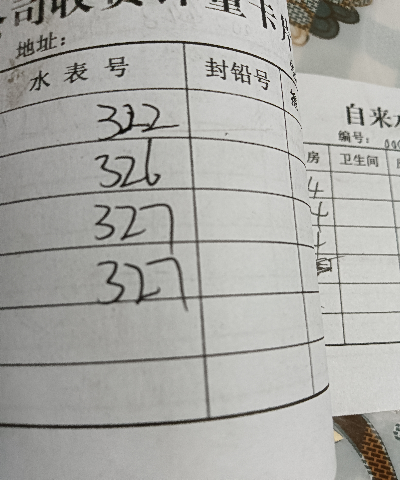 司收费计量卡片
地址：
水表号 封铅号
322
326
327
327
自来水
编号：
房 卫生间
4
4
4